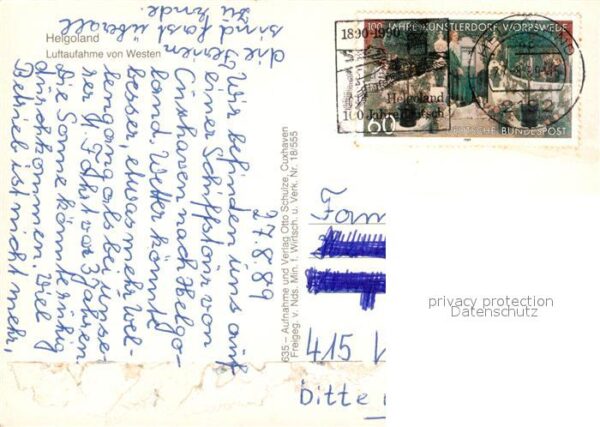 Helgoland
Luftaufahme von Westen
27.8.89
Wir befinden uns auf
einer Schiffstour von
Cuxhaven nach Helgo-
land. Wetter könnte
besser, etwas mehr Wel-
lengang als bei unse-
rer 1. Fahrt vor 3 Jahren.
Die Sonne könnte ruhig
durchkommen. Viel
Betrieb ist nicht mehr,
die Ferien
sind fast überall
zu Ende.
635 – Aufnahme und Verlag Otto Schulze, Cuxhaven
Freigeg. v. Nds. Min. f. Wirtsch. u. Verk. Nr. 18/555
100 JAHRE KÜNSTLERDORF WORPSWEDE
1890-1990
Helgoland
100 Jahre deutsch
60
DEUTSCHE BUNDESPOST
Fam
415
bitte
privacy protection
Datenschutz